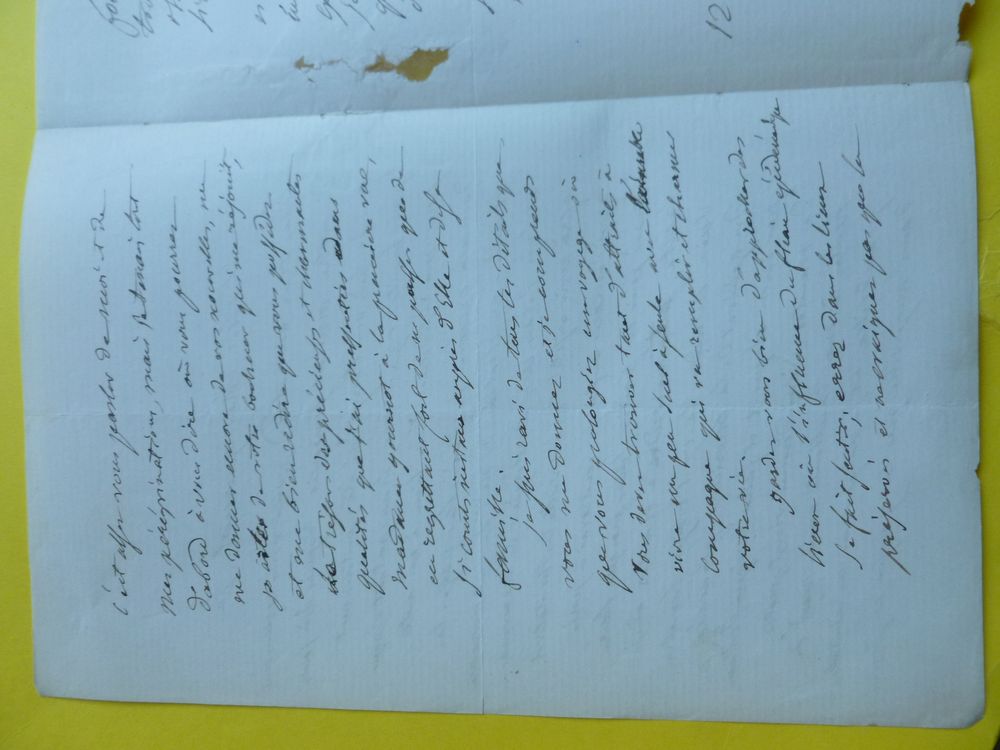 c'est assez vous parler de moi et de
mes pérégrinations, mais j'
d'abord à vous dire où vous pourrez
me donner encore de vos nouvelles, me
parler de votre bonheur qui me réjouit,
et me bien redire que vous possédez
le trésor des précieuses et charmantes
qualités que j'ai pressenties dans
Madame à la première vue,
en regrettant fort de ne passer que de
si courts instants auprès d'elle et de sa
famille.
je suis ravi de tous les détails que
vous me donnez et je comprends
que vous prolongiez un voyage où
vous devez trouver tant d'attraits à
vivre un peu seul à seule avec la
compagne qui va remplir et charmer
votre vie.
gardez vous bien d'approcher des
lieux où l'influence du fléau épidémique
se fait sentir, errez dans les lieux
préservés et ne craignez pas que la
12